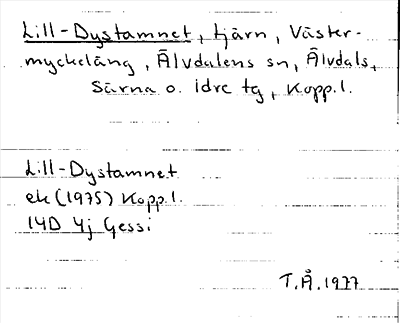 Lill-Dystamnet, tjärn, Väster-
myckeläng, Älvdalens sn, Älvdals,
Särna o. Idre tg, Kopp.l.
Lill-Dystamnet
ek (1975) Kopp.l.
14D 4j Gessi
T.Å. 1977